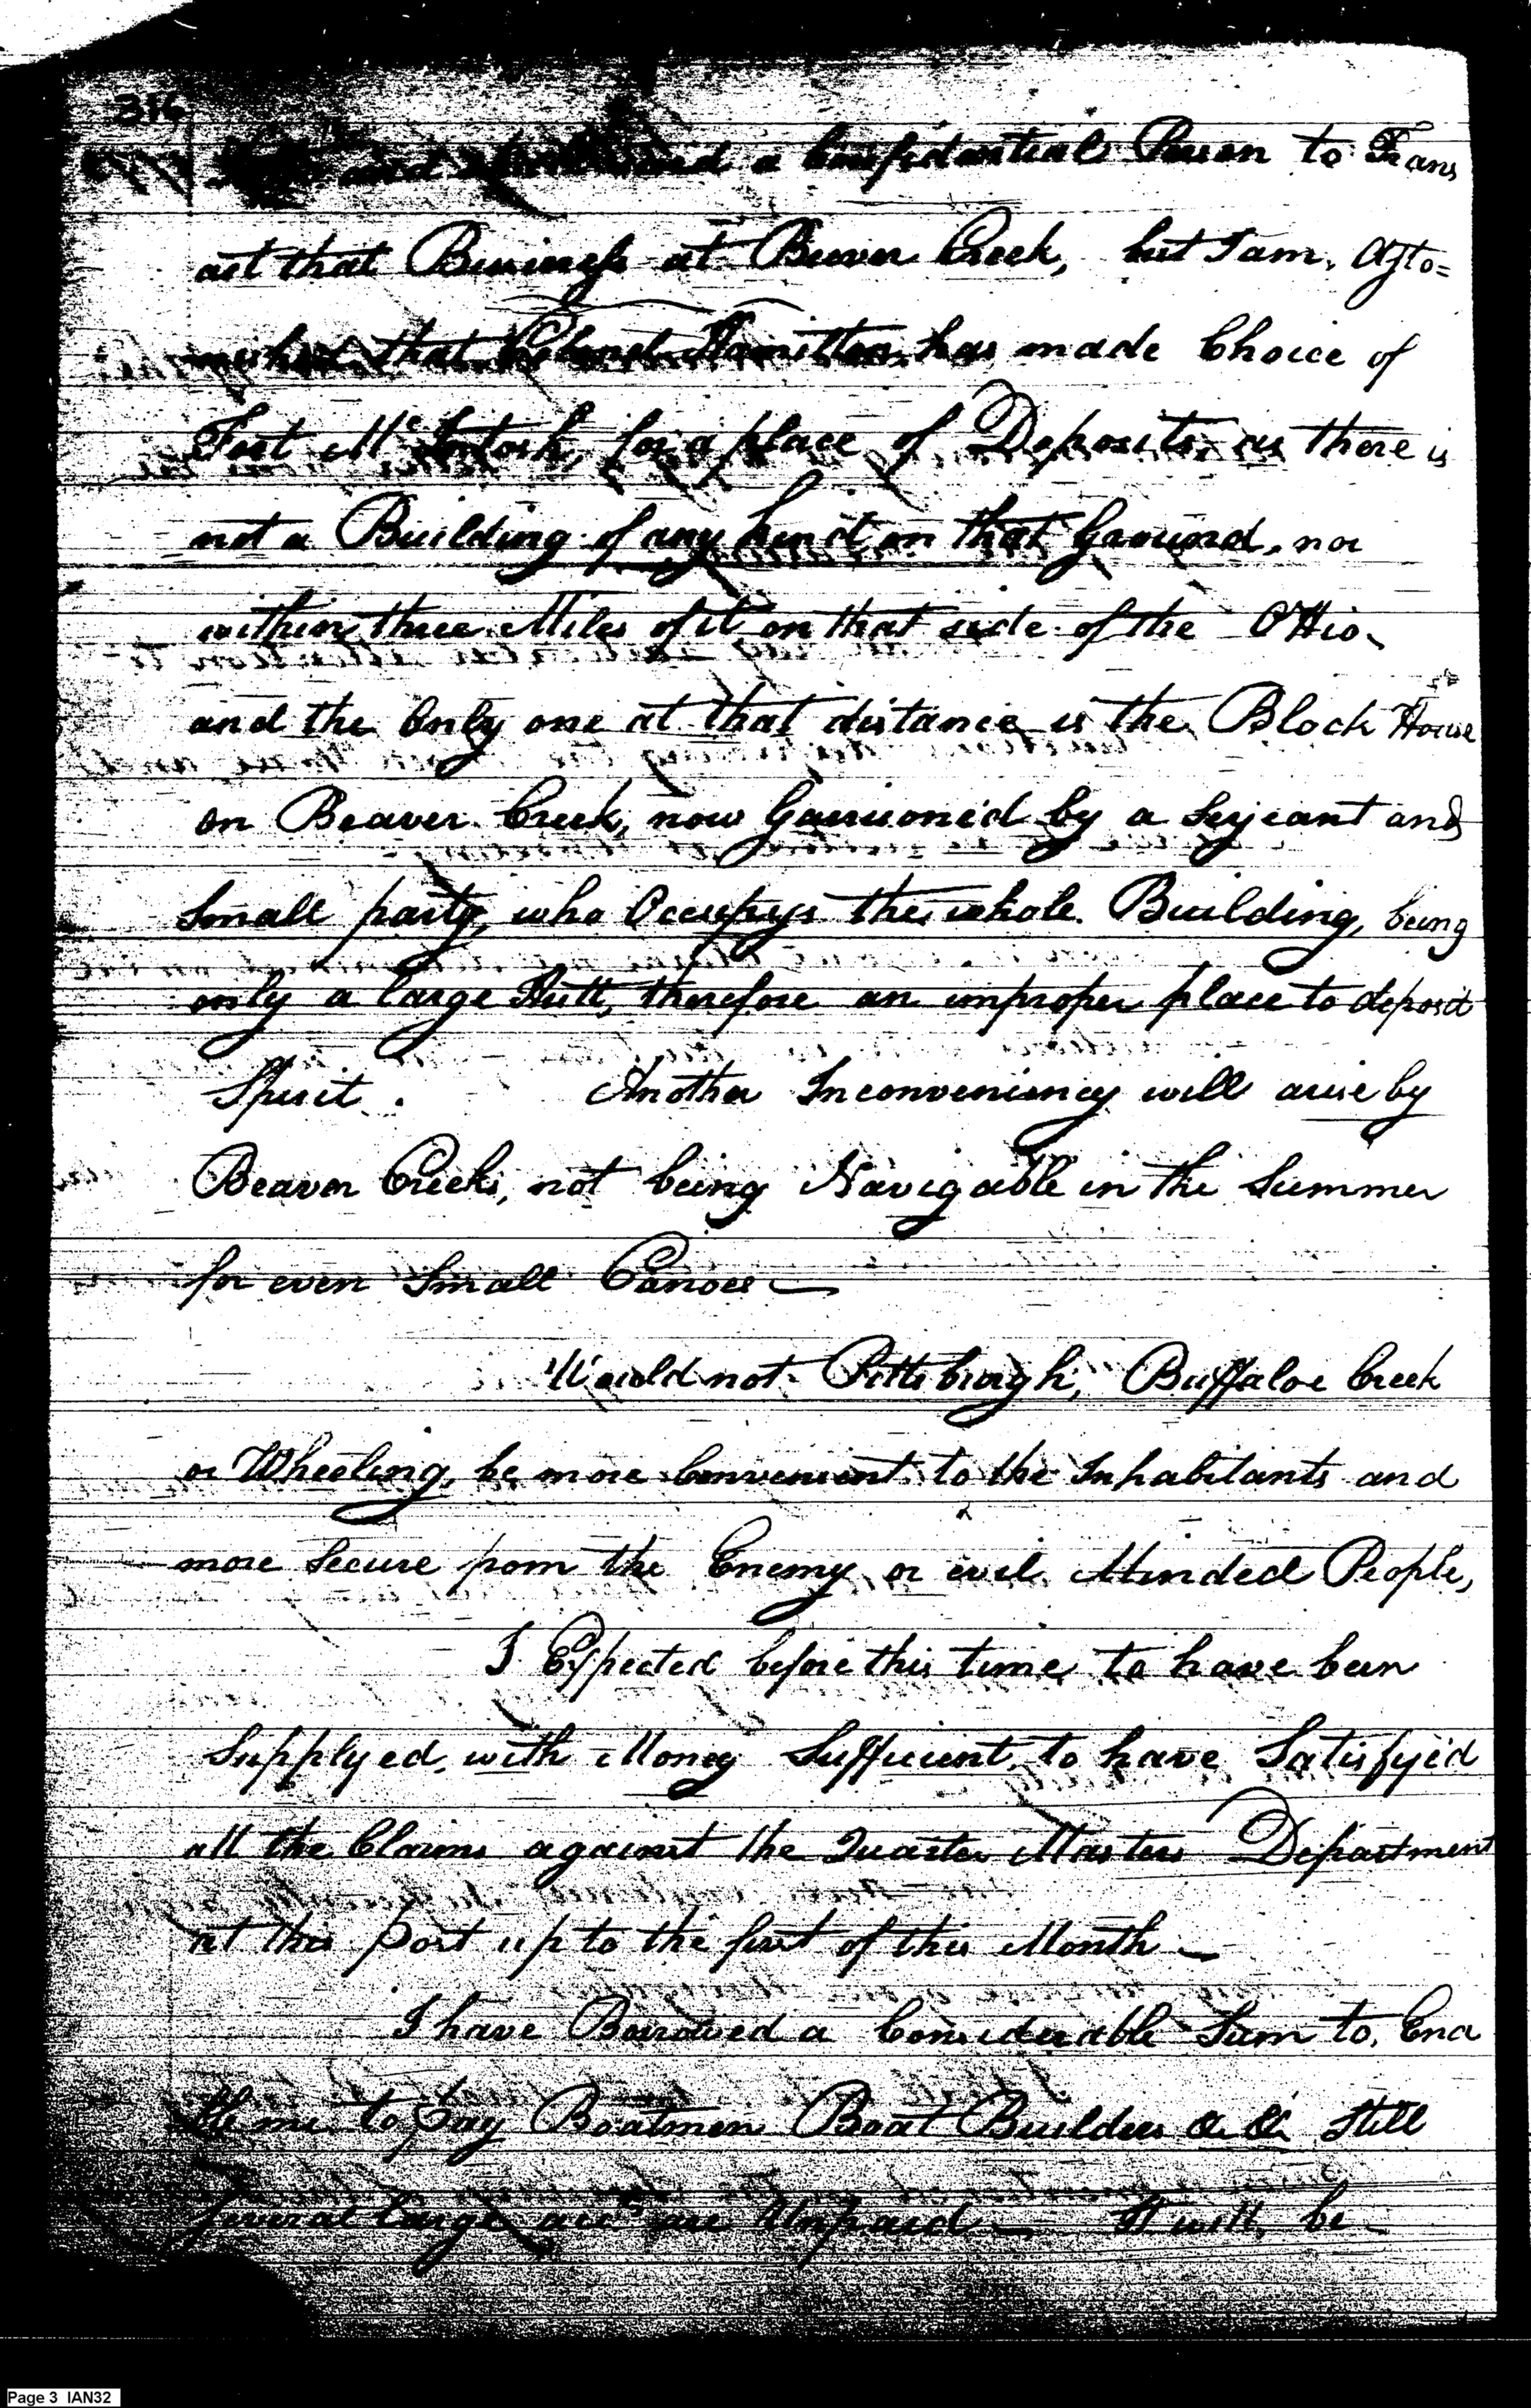 316
and shall send a Confidential Person to Trans
act that Business at Beever Creek, but I am, Asto=
nished that Colonel Hamilton, has made Choice of
Fort McIntosh, for a place of Deposits, as there is
not a Building of any kind on that Ground, nor
within three Miles of it, on that side of the Ohio
and the Only one at that distance is the Block House
on Beaver Creek, now Garrison'd by a Serjeant and
Small party, who Occupys the whole Building, being
only a large Hutt, therefore an improper place to deposit
Spirit. Another Inconveniency will arise by
Beaver Creeks, not being Navigable in the Summer
for even Small Canoes —
Would not Pittsburgh, Buffaloe Creek
or Wheeling, be more Convenient to the Inhabitants and
more Secure from the Enemy or evil Minded People,
I Expected before this time to have been
Supplyed, with Money Sufficient to have Satisfy'd
all the Claims against the Quarter Masters Department
at this Post up to the first of this Month —
I have Borrowed a Considerable Sum to, Ena
ble me to Pay Boatmen Boat Builders &. &c Still
Several Large accts are Unpaid — It will be
Page 3 IAN32